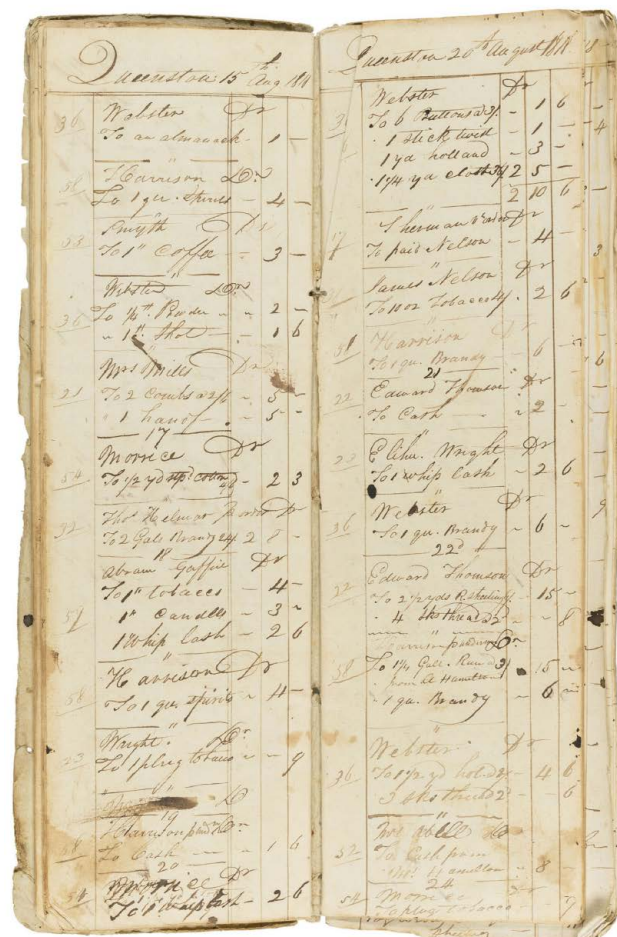 Queenston 15th Aug 181
36 Webster Dr
To an almanack - 1 -
58 Harrison Dr
To 1 qur. Spirits - 4 -
33 Smyth Dr
To 1 " Coffee - 3 -
Webster Dr
36 To ½ " Powder - - 2 -
" 1 " Shot - 1 6
Mrs Mills Dr
21 To 2 Combs a 2/6 - 5 -
" 1 handf - 5 -
17
Morrice Dr
54 To ½ yd stpd cotton - 2 3
32 Thos Helmer Dr
To 2 Gals Brandy 24 2 8 -
18
Abram Dr
To 1 " tobacco - 4 -
57 1 " Candles - 3 -
1 Whip lash - 2 6
Harrison Dr
58 To 1 qur spirits - 4 -
Wright Dr
23 To 1 plug tobacco - - 9
Dr
19
Harrison Dr
58 To Cash - 1 6
20
Morrice Dr
54 To 1 whip lash - 2 6
Queenston 20th August 1818
Webster Dr
36 To 6 Buttons a 3 - 1 6
" 1 stick twist - 1 -
1 yd holland - 3 -
1 1/4 yd cloth 36/ 2 5 -
2 10 6
Sherman Dr
17 To paid Nelson - 4 -
James Nelson Dr
To 10 oz Tobacco 4/ . 2 6
Harrison Dr
58 To 1 qu. Brandy - 6 -
21
22 Edward Thomson Dr
To Cash - " 2 -
23 Elihu Wright Dr
To 1 whip lash - 2 6
Webster Dr
36 To 1 qu. Brandy - 6 -
22d
Edward Thomson Dr
22 To 2 ½ yds R. sheeting - 15 -
" 4 sks thread 2 - - 8
Harrison Dr
58 To 1 1/4 Gall. Rum - 15 -
from A Hamilton
1 qu. Brandy - 6
Webster Dr
36 To 1 ½ yd hold - 4 6
3 sks thread 2 - 6
Dr
32 To Cash from
Hamilton " 8 -
24
54 Morrice Dr
To plug tobacco